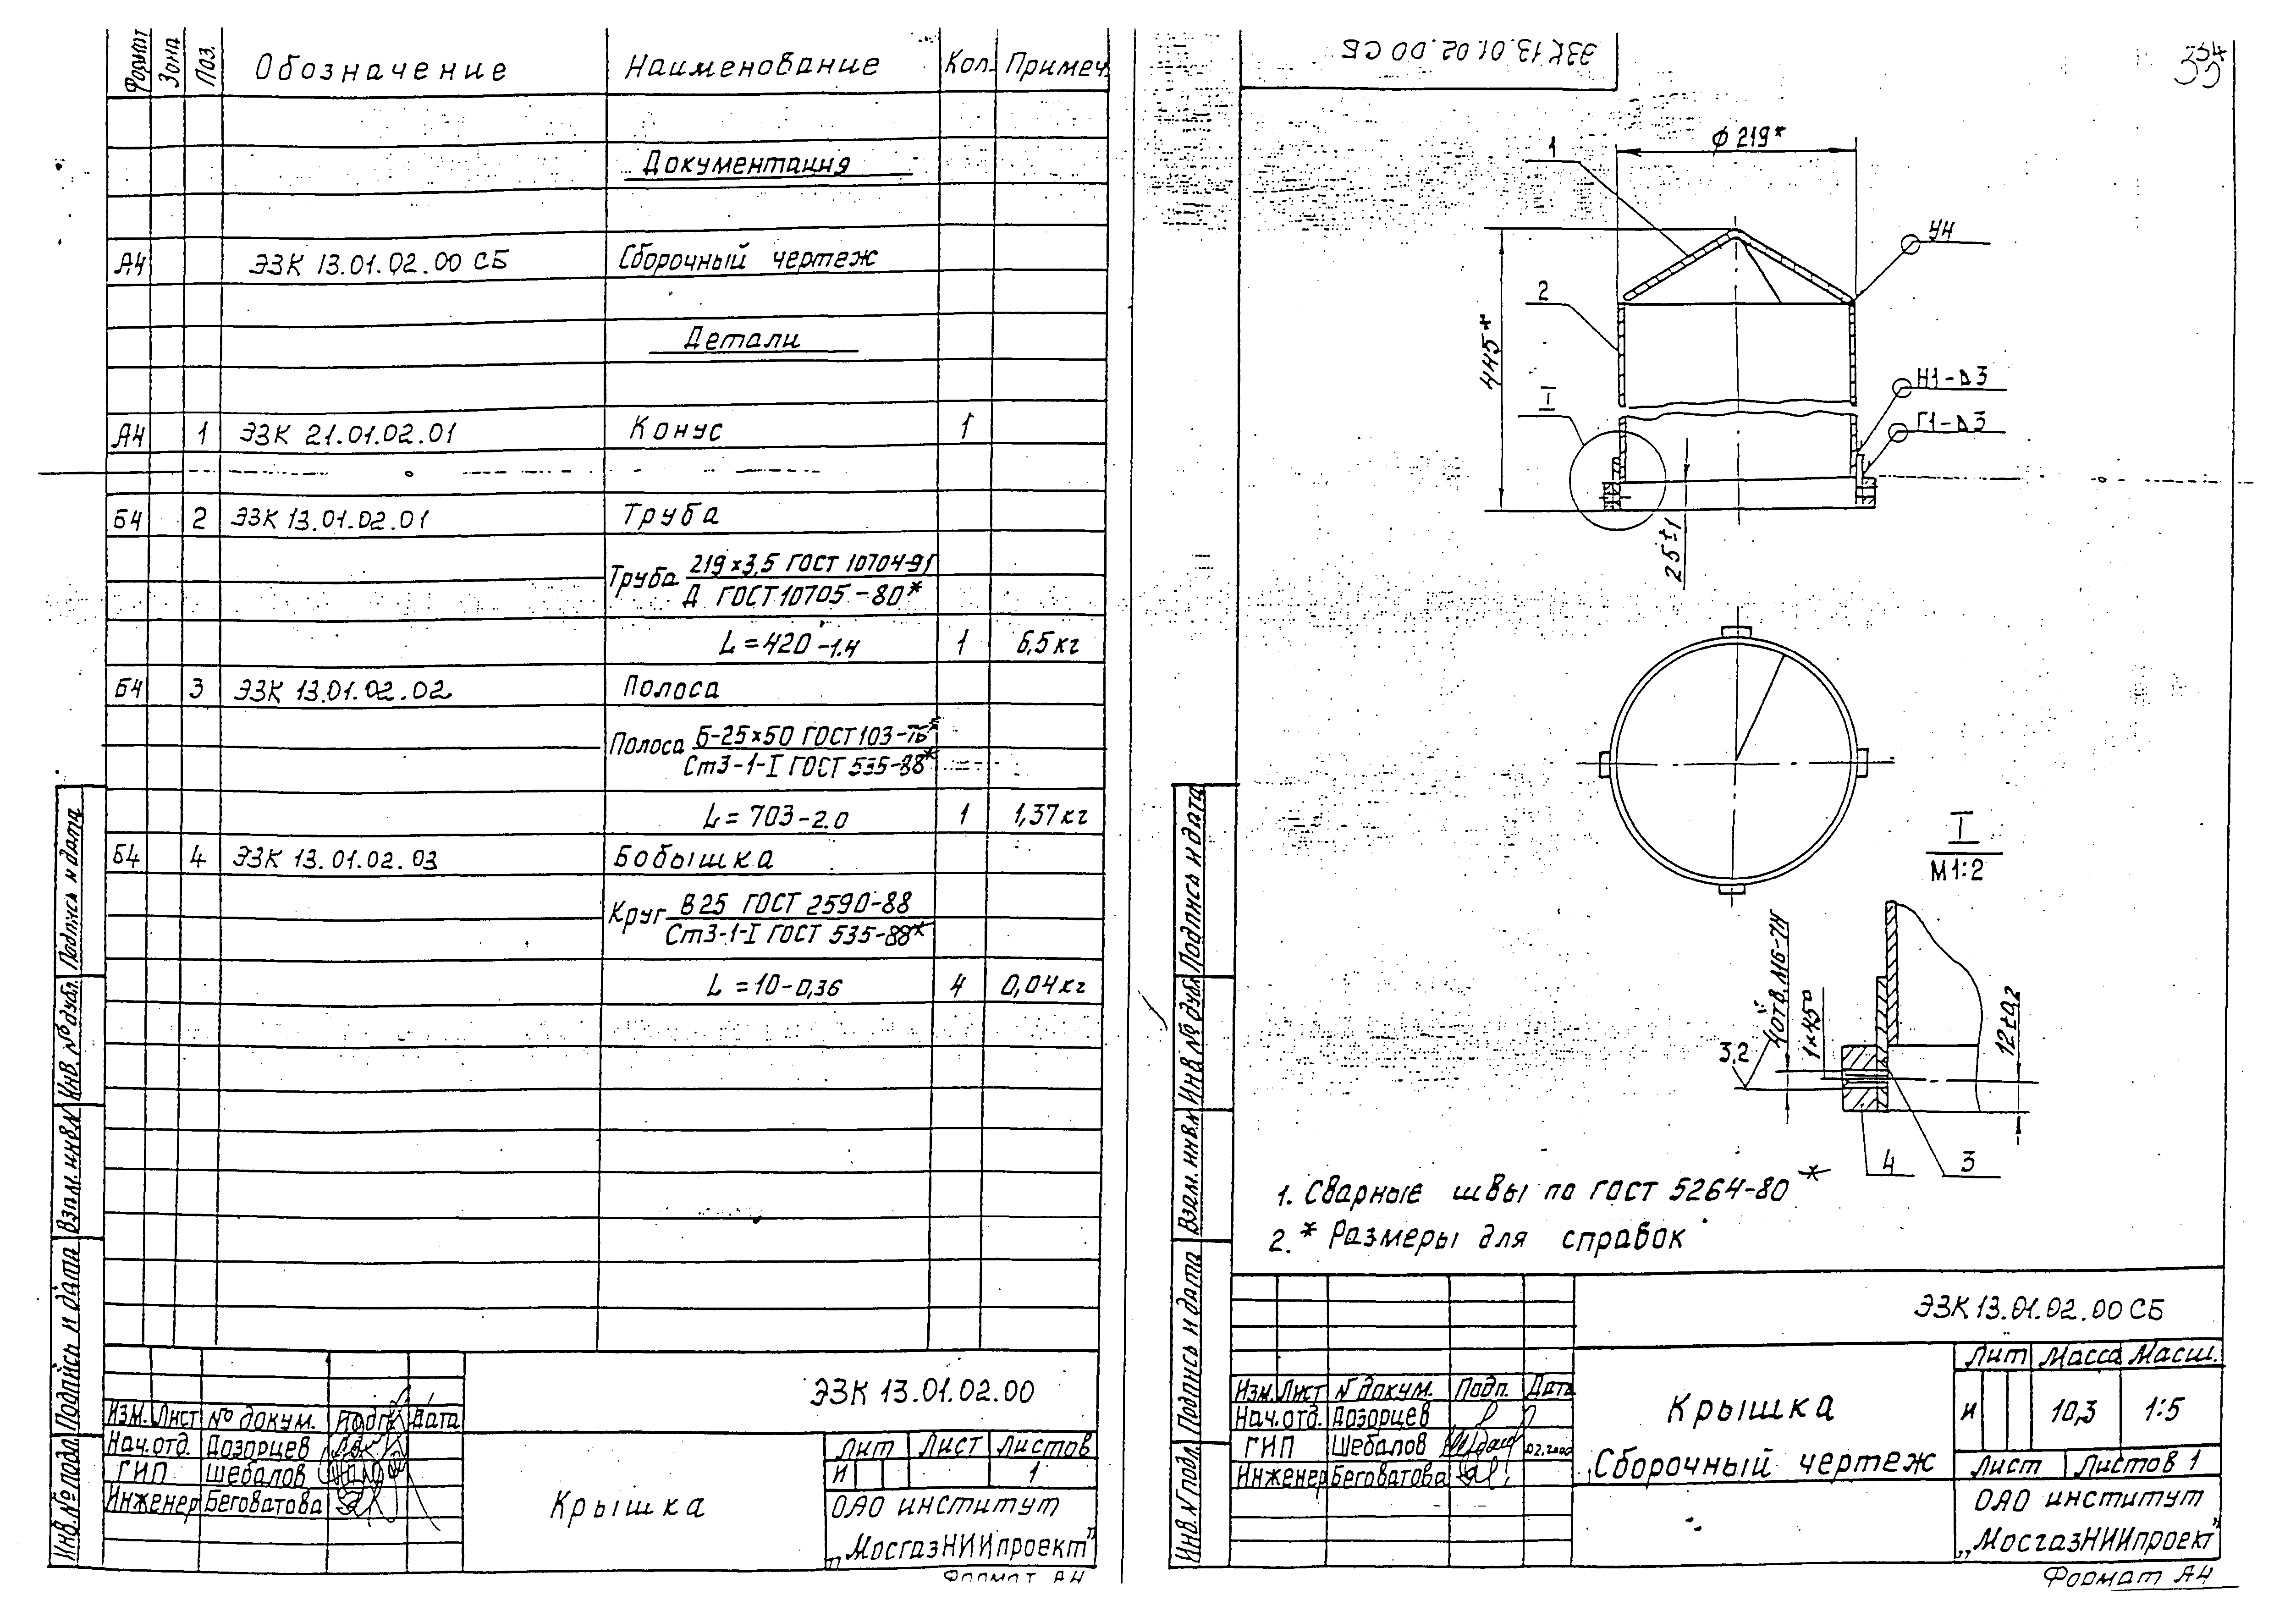 Формат Зона Поз. Обозначение Наименование Кол. Примеч.
Документация
А4 ЭЗК 13.01.02.00 СБ Сборочный чертеж
Детали
А4 1 ЭЗК 21.01.02.01 Конус 1
Б4 2 ЭЗК 13.01.02.01 Труба
Труба 219×3,5 ГОСТ 10704-91
Д ГОСТ 10705-80*
L=420-1.4 1 6,5кг
Б4 3 ЭЗК 13.01.02.02 Полоса
Полоса Б-25×50 ГОСТ 103-76*
Ст3-1-I ГОСТ 535-88*
L=703-2.0 1 1,37кг
Б4 4 ЭЗК 13.01.02.03 Бобышка
Круг В25 ГОСТ 2590-88
Ст3-1-I ГОСТ 535-88*
L=10-0,36 4 0,04кг
Подпись и дата
Инв. № дубл.
Взам. инв.№
Подпись и дата
Инв. № подл.
ЭЗК 13.01.02.00
Изм. Лист № докум. Подп. Дата
Нач.отд. Дозорцев
ГИП Шебалов
Инженер Беговатова
Крышка
Лит Лист Листов
И 1
ОАО институт
„МосгазНИИпроект"
Формат А4
ЭЗК 13.01.02.00 СБ
ф 219*
1
У4
2
445*
Н1-Δ3
Г1-Δ3
I
25±1
I
М1:2
4отв. М6-7Н
1×45°
3,2
12±0,2
4
3
1. Сварные швы по ГОСТ 5264-80*
2. * Размеры для справок
Подпись и дата
Инв № дубл.
Взам. инв.№
Подпись и дата
Инв. № подл.
ЭЗК 13.01.02.00 СБ
Изм. Лист № докум. Подп. Дата
Нач.отд. Дозорцев
ГИП Шебалов 02.2000
Инженер Беговатова
Крышка
Сборочный чертеж
Лит Масса Масш.
И 10,3 1:5
Лист Листов 1
ОАО институт
„МосгазНИИпроект"
Формат А4